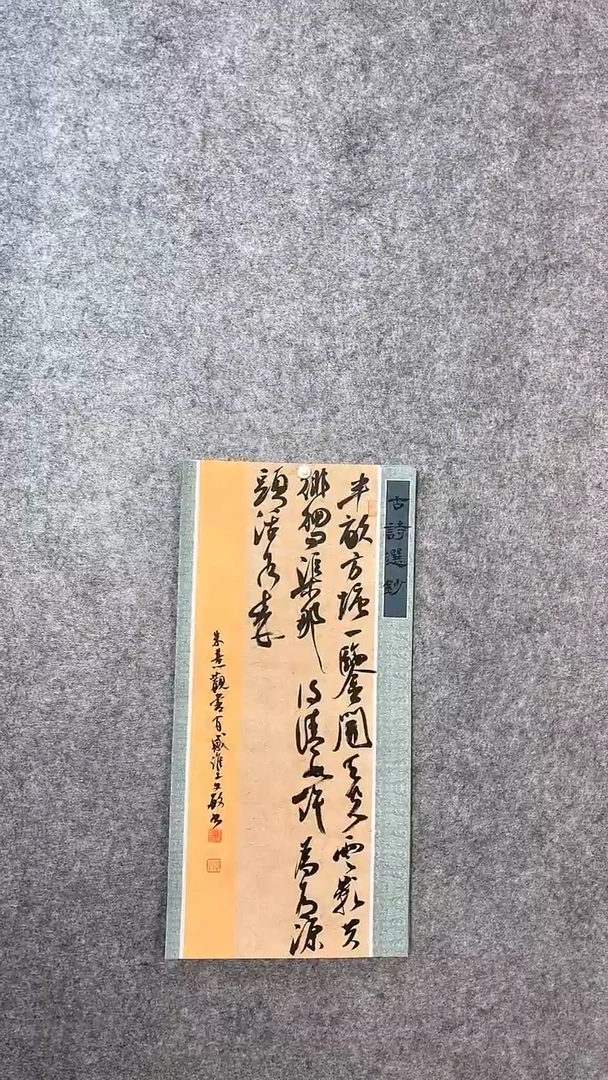 古詩選鈔
半畝方塘一鑒開天光雲影共
徘徊問渠那得清如許為有源
頭活水來
朱熹觀書有感